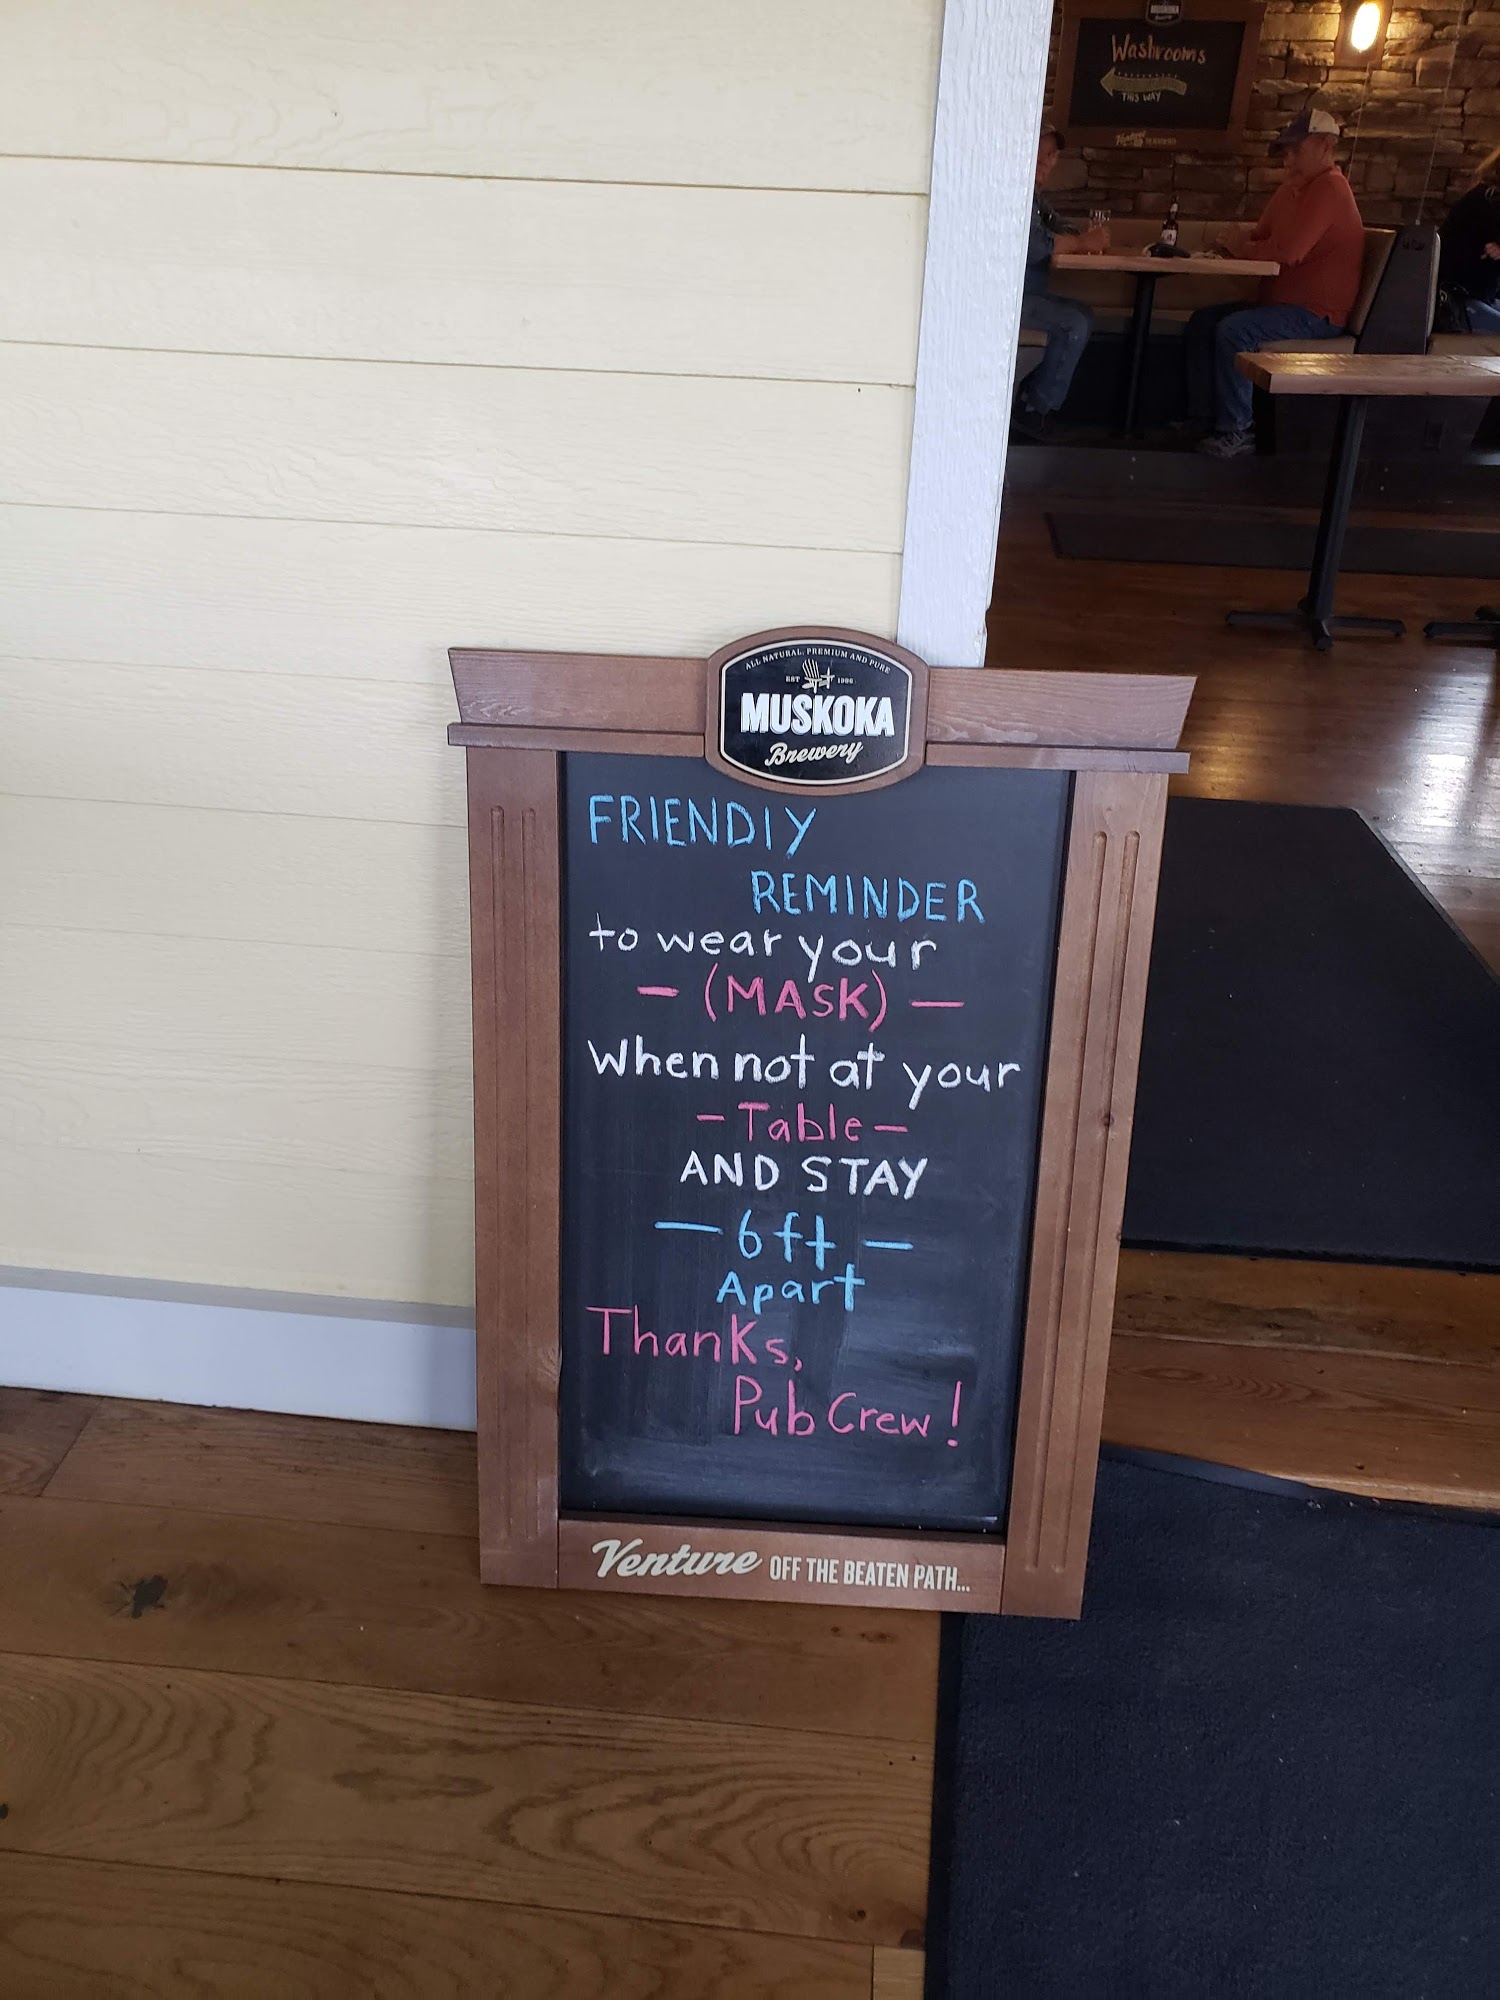 Washrooms
THIS WAY
ALL NATURAL, PREMIUM AND PURE
EST 1996
MUSKOKA
Brewery
FRIENDLY
REMINDER
to wear your
- (MASK) -
When not at your
- Table -
AND STAY
- 6ft -
Apart
Thanks,
Pub Crew!
Venture OFF THE BEATEN PATH...